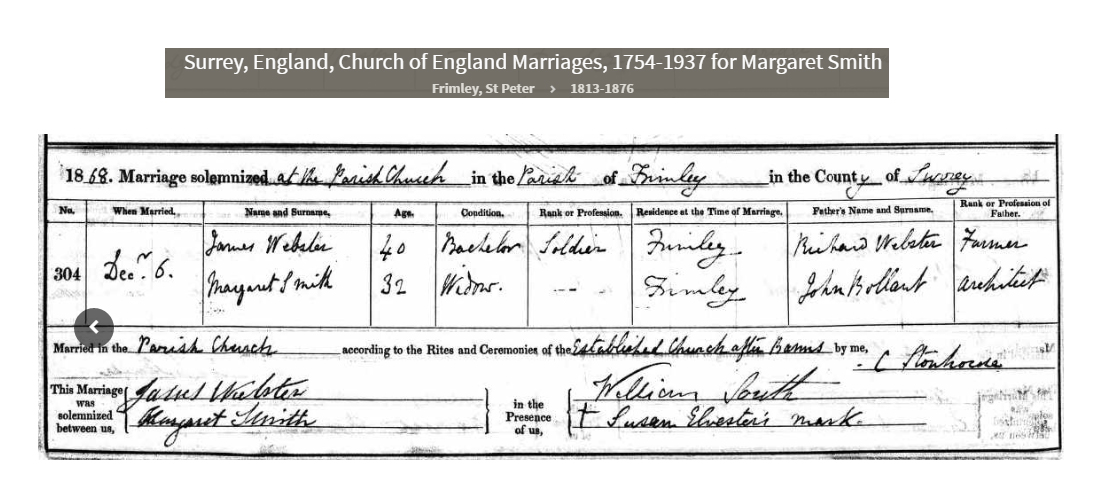 Surrey, England, Church of England Marriages, 1754-1937 for Margaret Smith
Frimley, St Peter › 1813-1876
1868. Marriage solemnized at the Parish Church in the Parish of Frimley in the County of Surrey
No. When Married. Name and Surname. Age. Condition. Rank or Profession. Residence at the Time of Marriage. Father's Name and Surname. Rank or Profession of Father.
James Webster 40 Bachelor Soldier Frimley Richard Webster Farmer
304 Decr. 6.
Margaret Smith 32 Widow. -- Frimley John architect
Married in the Parish Church according to the Rites and Ceremonies of the Established Church after Banns by me,
C Stonhouse
This Marriage was solemnized between us, James Webster in the Presence of us, William
Margaret Smith + Susan mark.